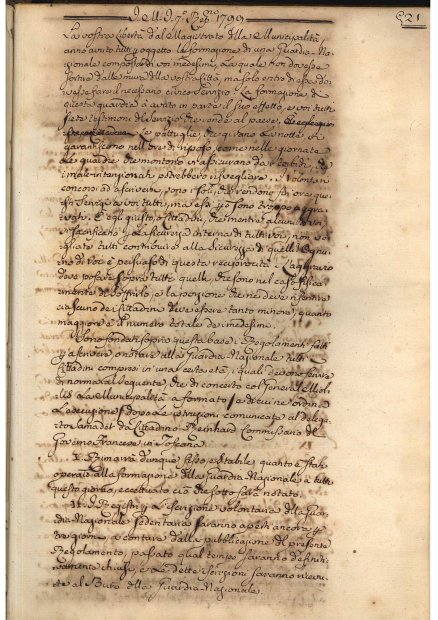 I. M. I. 7. 1799
521
La vostra libertà dal Magistrato della Municipalità,
anno avuto tutti per oggetto la formazione di una Guardia Na-
zionale composta di voi medesimi, la quale non dovesse
sortire dalle mura della vostra Città, ma solo entro di essa do-
vesse fare il necessario civico Servizio. La formazione di
questa guardia à avuto in parte il suo effetto, e voi tutti
siete testimoni del Servizio che rende al paese.
le pattuglie, che girano la notte, vi
garantiscono nell'ore di riposo, come nelle giornate
le guardie che montono vi assicurano da
male intenzionati potrebbero risvegliare. I Volontari
concorsi ad ascriversi, sono i soli, che rendono sin ora que-
sti Servizi a voi tutti, ma essi sono troppo aggra-
vati. È egli giusto, o Cittadini, che mentre alcuni di voi
si sacrificano per la sicurezza interna di tutti voi, non vo-
gliate tutti contribuire alla sicurezza di quelli? Ognu-
no di voi è persuaso di questa reciprocità. L'aggravio
deve posare sopra tutti quelli, che sono nel caso
mente di soffrirlo, e la porzione che ne deve risentire
ciascuno de Cittadini deve essere tanto minore, quanto
maggiore è il numero totale de medesimi.
Sono fondati sopra questa base i Regolamenti fatti
per ascrivere, e notare alla Guardia Nazionale tutti i
Cittadini compresi in una certa età, i quali devono servire
di norma al Seguente, che di concerto col General Miol-
lis la Municipalità a formato, e di cui ne ordina
l'esecuzione dopo le istruzioni comunicate al delega-
to dal Cittadino Reinhard Commissario del
Governo Francese in Toscana.
I. Rimarrà dunque fisso, e stabile, quanto è stato
operato alla formazione della Guardia Nazionale a tutto
questo giorno, eccettuato ciò che sotto sarà notato.
II. I Registri per l'iscrizione volontaria della Guar-
dia Nazionale Sedentaria saranno aperti ancora per
tre giorni, a contare dalla pubblicazione del presente
Regolamento, passato qual tempo saranno definiti-
vamente chiusi, e le dette iscrizioni saranno ricevu-
te al Burò della Guardia Nazionale.